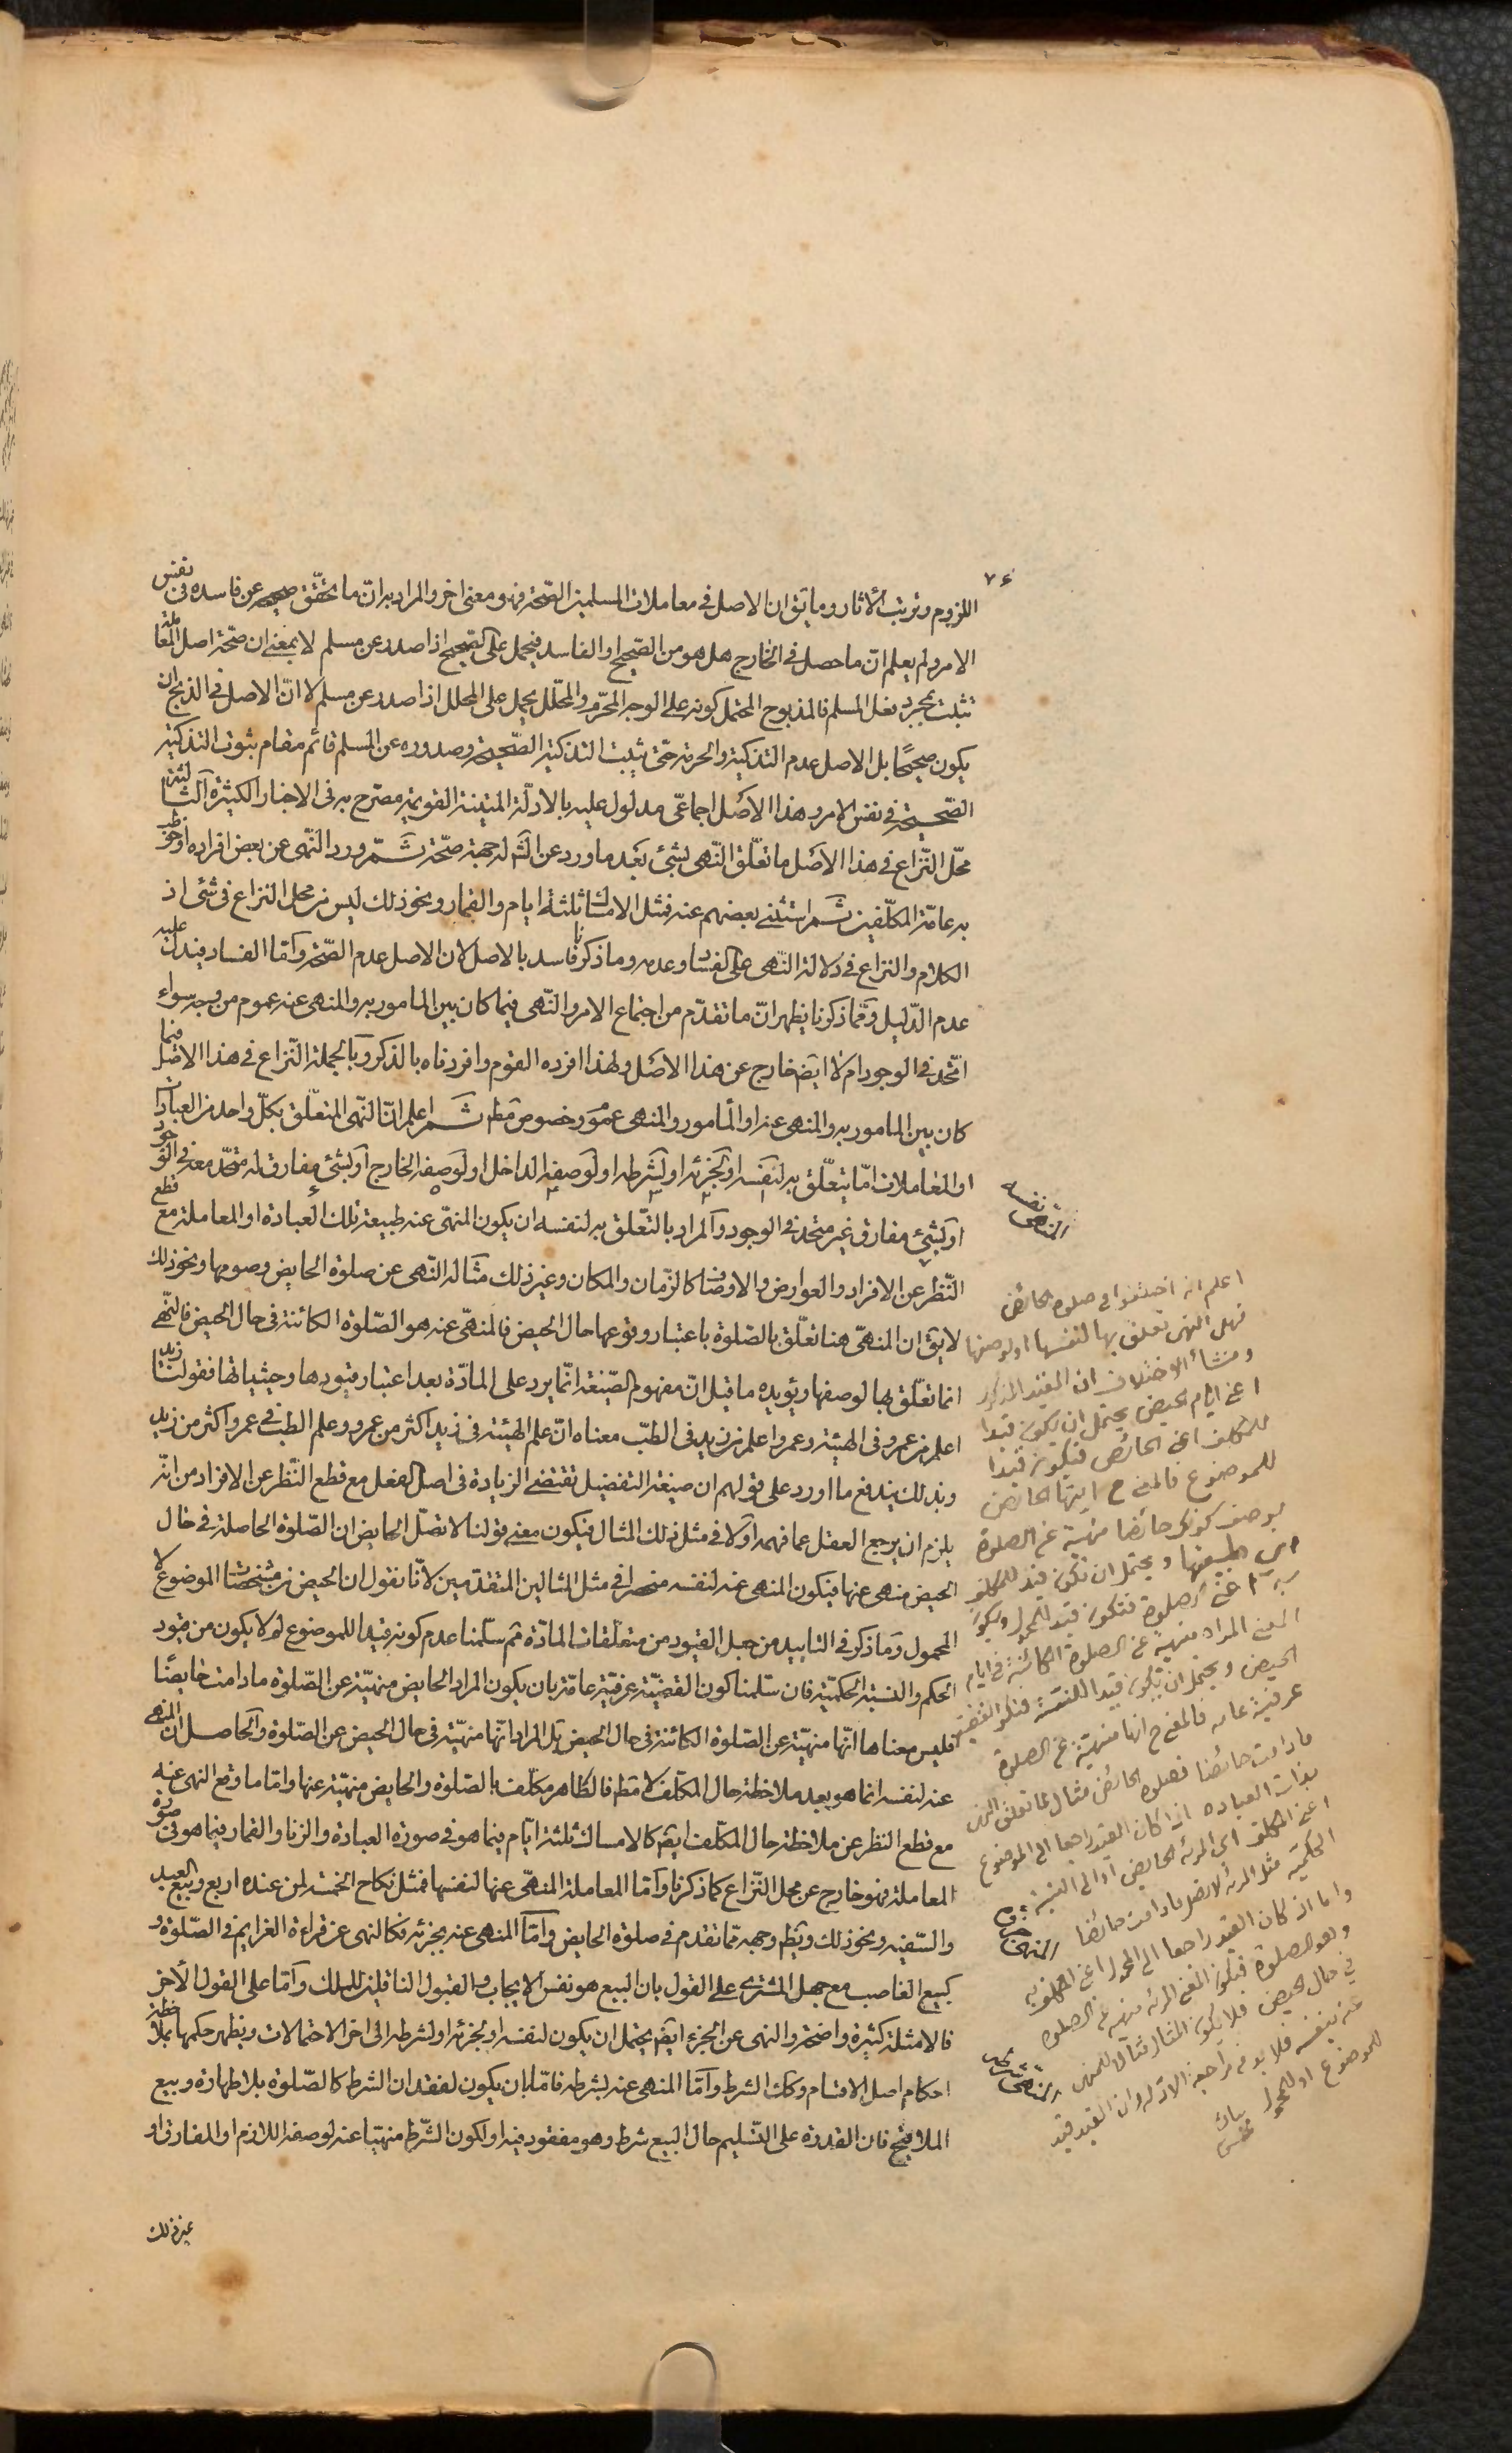 ٧٤
اللزوم وترتيب الآثار وما يق ان الاصل فى معاملات المسلمين الصّحة فهو معنى اخر والمراد به انّ ما يتحقّق صحيحه عن فاسده فى نفس
الامر ولم يعلم انّ ما حصل فى الخارج هل هو من الصّحيح او الفاسد فيحمل على الصّحيح اذا صدر عن مسلم لا بمعنى ان صحّة اصل المعاملة
تثبت بمجرد فعل المسلم فالمذبوح المحتمل كونه على الوجه المحرّم والمحلّل يحمل على المحلل اذا صدر عن مسلم لا انّ الاصل فى الذبح ان
يكون صحيحًا بل الاصل عدم التذكية والحرمة حتّى يثبت التذكية الصّحيحة وصدوره عن المسلم قائم مقام ثبوت التذكية
الصّحيحة فى نفس الامر وهذا الاصل اجماعىّ مدلول عليه بالادلّة المتينة القويمة مصرّح به فى الاخبار الكثيرة الثالثة
محّل النّزاع فى هذا الاصل ما تعلّق النّهى بشئ بعد ما ورد عن الشّ له جهة صحّة ثمّ ورد النّهى عن بعض افراده او خوطب
به عامّة المكلّفين ثمّ استثنى بعضهم عنه فمثل الامساك ثلثة ايام والقمار ونحو ذلك ليس من محل النزاع فى شئ اذ
الكلام والنزاع فى دلالة النّهى على الفساد وعدمه وما ذكرنا فاسد بالاصل لان الاصل عدم الصّحة وامّا الفساد فيدل عليه
عدم الدّليل وممّا ذكرنا يظهر انّ ما تقدّم من اجتماع الامر والنّهى فيما كان بين المامور به والمنهى عنه عموم من وجه سواء
اتّحد فى الوجود ام لا ايض خارج عن هذا الاصل ولهذا افرده القوم وافردناه بالذكر وبالجملة النّزاع فى هذا الاصل فيما
كان بين المامور به والمنهى عنه او المامور والمنهى عموم وخصوص مطم ثمّ اعلم انّ النّهى المتعلّق بكلّ واحد من العبادات
او المعاملات امّا يتعلّق به لنفسه او لجزئه او لشرطه او لوصفه الداخل او لوصفه الخارج او لشئ مفارق له متّحد معه فى الوجود
او لشئ مفارق غير متحد فى الوجود والمراد بالتعّلق به لنفسه ان يكون المنهىّ عنه طبيعة تلك العبادة او المعاملة مع قطع
النّظر عن الافراد والعوارض والاوصاف كالزّمان والمكان وغير ذلك مثاله النّهى عن صلوة الحايض وصومها ونحو ذلك
لا يق ان المنهىّ هنا تعلّق بالصّلوة باعتبار وقوعها حال الحيض فالمنهىّ عنه هو الصّلوة الكائنة فى حال الحيض فالنّهى
انما تعلّق بها لوصفها ويؤيده ما قيل انّ مفهوم الصّيغة انّما يرد على المادّة بعد اعتبار قيودها وحيثياتها فقولنا زيد
اعلم من عمرو فى الهيئة وعمرو اعلم من زيد فى الطبّ معناه انّ علم الهيئة فى زيد اكثر من عمرو وعلم الطبّ فى عمرو اكثر من زيد
وبذلك يندفع ما اورد على قولهم ان صيغة التفضيل تقتضى الزيادة فى اصل الفعل مع قطع النّظر عن الافراد من انّه
يلزم ان يرجع العقل عما فهمه اولا فى مثل ذلك المثال فيكون معنى قولنا لا تصلّ الحايض ان الصّلوة الحاصلة فى حال
الحيض منهى عنها فيكون المنهى عنه لنفسه منحصرا فى مثل المثالين المتقدمين لانّا نقول ان الحيض من مشخصات الموضوع لا
المحمول وما ذكر فى التاييد من جعل القيود من متعلّقات المادّة ثم سلّمنا عدم كونه قيدا للموضوع لم لا يكون من قيود
الحكم والنسبة الحكميّة فان سلّمنا كون القضيّة عرفيّة عامّة بان يكون المراد الحايض منهيّة عن الصّلوة ما دامت حايضًا
فليس معناها انّها منهيّة عن الصّلوة الكائنة فى حال الحيض بل المراد انّها منهيّة فى حال الحيض عن الصّلوة والحاصل ان المنهى
عنه لنفسه انما هو بعد ملاحظة حال المكلّف لا مطم فالطّاهر مكلّف بالصّلوة والحايض منهيّة عنها وامّا ما وقع النهى عنه
مع قطع النظر عن ملاحظة حال المكلّف ايض كالامساك ثلثة ايّام فيما هو فى صورة العبادة والزنا والقمار فيما هو فى صورة
المعاملة فهو خارج عن محل النّزاع كما ذكرنا وامّا المعاملة المنهىّ عنها لنفسها فمثل نكاح الخامسة لمن عنده اربع وبيع العبد
والسّفيه ونحو ذلك ويظم وجهه ممّا تقدم فى صلوة الحايض وامّا المنهى عنه بجزئه فكالنهى عن قراءة العزايم فى الصّلوة و
كبيع الغاصب مع جهل المشترى على القول بان البيع هو نفس الايجاب والقبول الناقلين للملك وامّا على القول الآخر
فالامثلة كثيرة واضحة والنهى عن الجزء ايض يحتمل ان يكون لنفسه او لجزئه او لشرطه الى اخر الاحتمالات ويظهر حكمها بملاحظة
احكام اصل الاقسام وكك الشرط وامّا المنهى عنه لشرطه فامّا بان يكون لفقدان الشرط كالصّلوة بلا طهارة وبيع
الملاقيح فان القدرة على التسليم حال البيع شرط وهو مفقود فيه او لكون الشّرط منهيّا عنه لوصفه اللازم او المفارق او
غير ذلك
اعلم انه اختلفوا فى صلوة الحائض
فهل النهى تعلق بها لنفسها او لوصفها
ومنشأ الاختلاف ان القيد المذكور
اعنى ايام الحيض يحتمل ان يكون قيدا
للمكلف اعنى الحائض فيكون قيدا
للموضوع فالمعنى ح ايتها الحائض
بوصف كونك حائضا منهية عن الصلوة
اى طبيعتها ويحتمل ان تكون قيد للمكلف
به اعنى الصلوة فتكون قيدا للمحمول ويكون
المعنى المراد منهية عن الصلوة الكائنة فى ايام
الحيض ويحتمل ان يكون قيدا للنسبة فتكون القضية
عرفية عامه فالمعنى ح انها منهية عن الصلوة
ما دامت حائضا فصلوة الحائض مثال لما تعلق النهى
بذات العباده اذا كان القيد راجعا الى الموضوع
اعنى المكلف اى المرئه الحايض او الى النسبة
الحكميه مثل المرئه لا تصل ما دامت حائضا
واما اذ كان القيد راجعا الى المحمول اعنى المكلف به
وهو الصلوة فيكون المعنى المرئه منهيه عن الصلوة
فى حال الحيض فلا يكون المثال مثالا للمنهى
عنه بنفسه فلا بد من مراجعة الادله وان القيد قيد
للموضوع او للمحمول